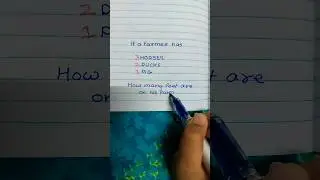 If a farmer has
3 HORSES
2 DUCKS
1 PIG
How many feet are
on his Farm